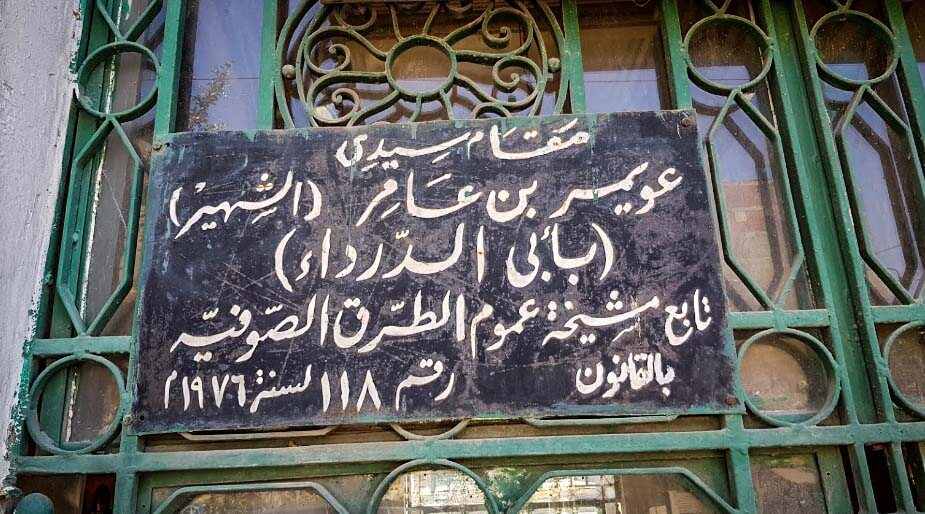 مقام سيدي
عويمر بن عَامِر (الشهيرْ)
(بأبى الدّرداء)
تابع مشيخة عموم الطرّق الصّوفيّه
بالقانون رقم ١١٨ لسنة ١٩٧٦م